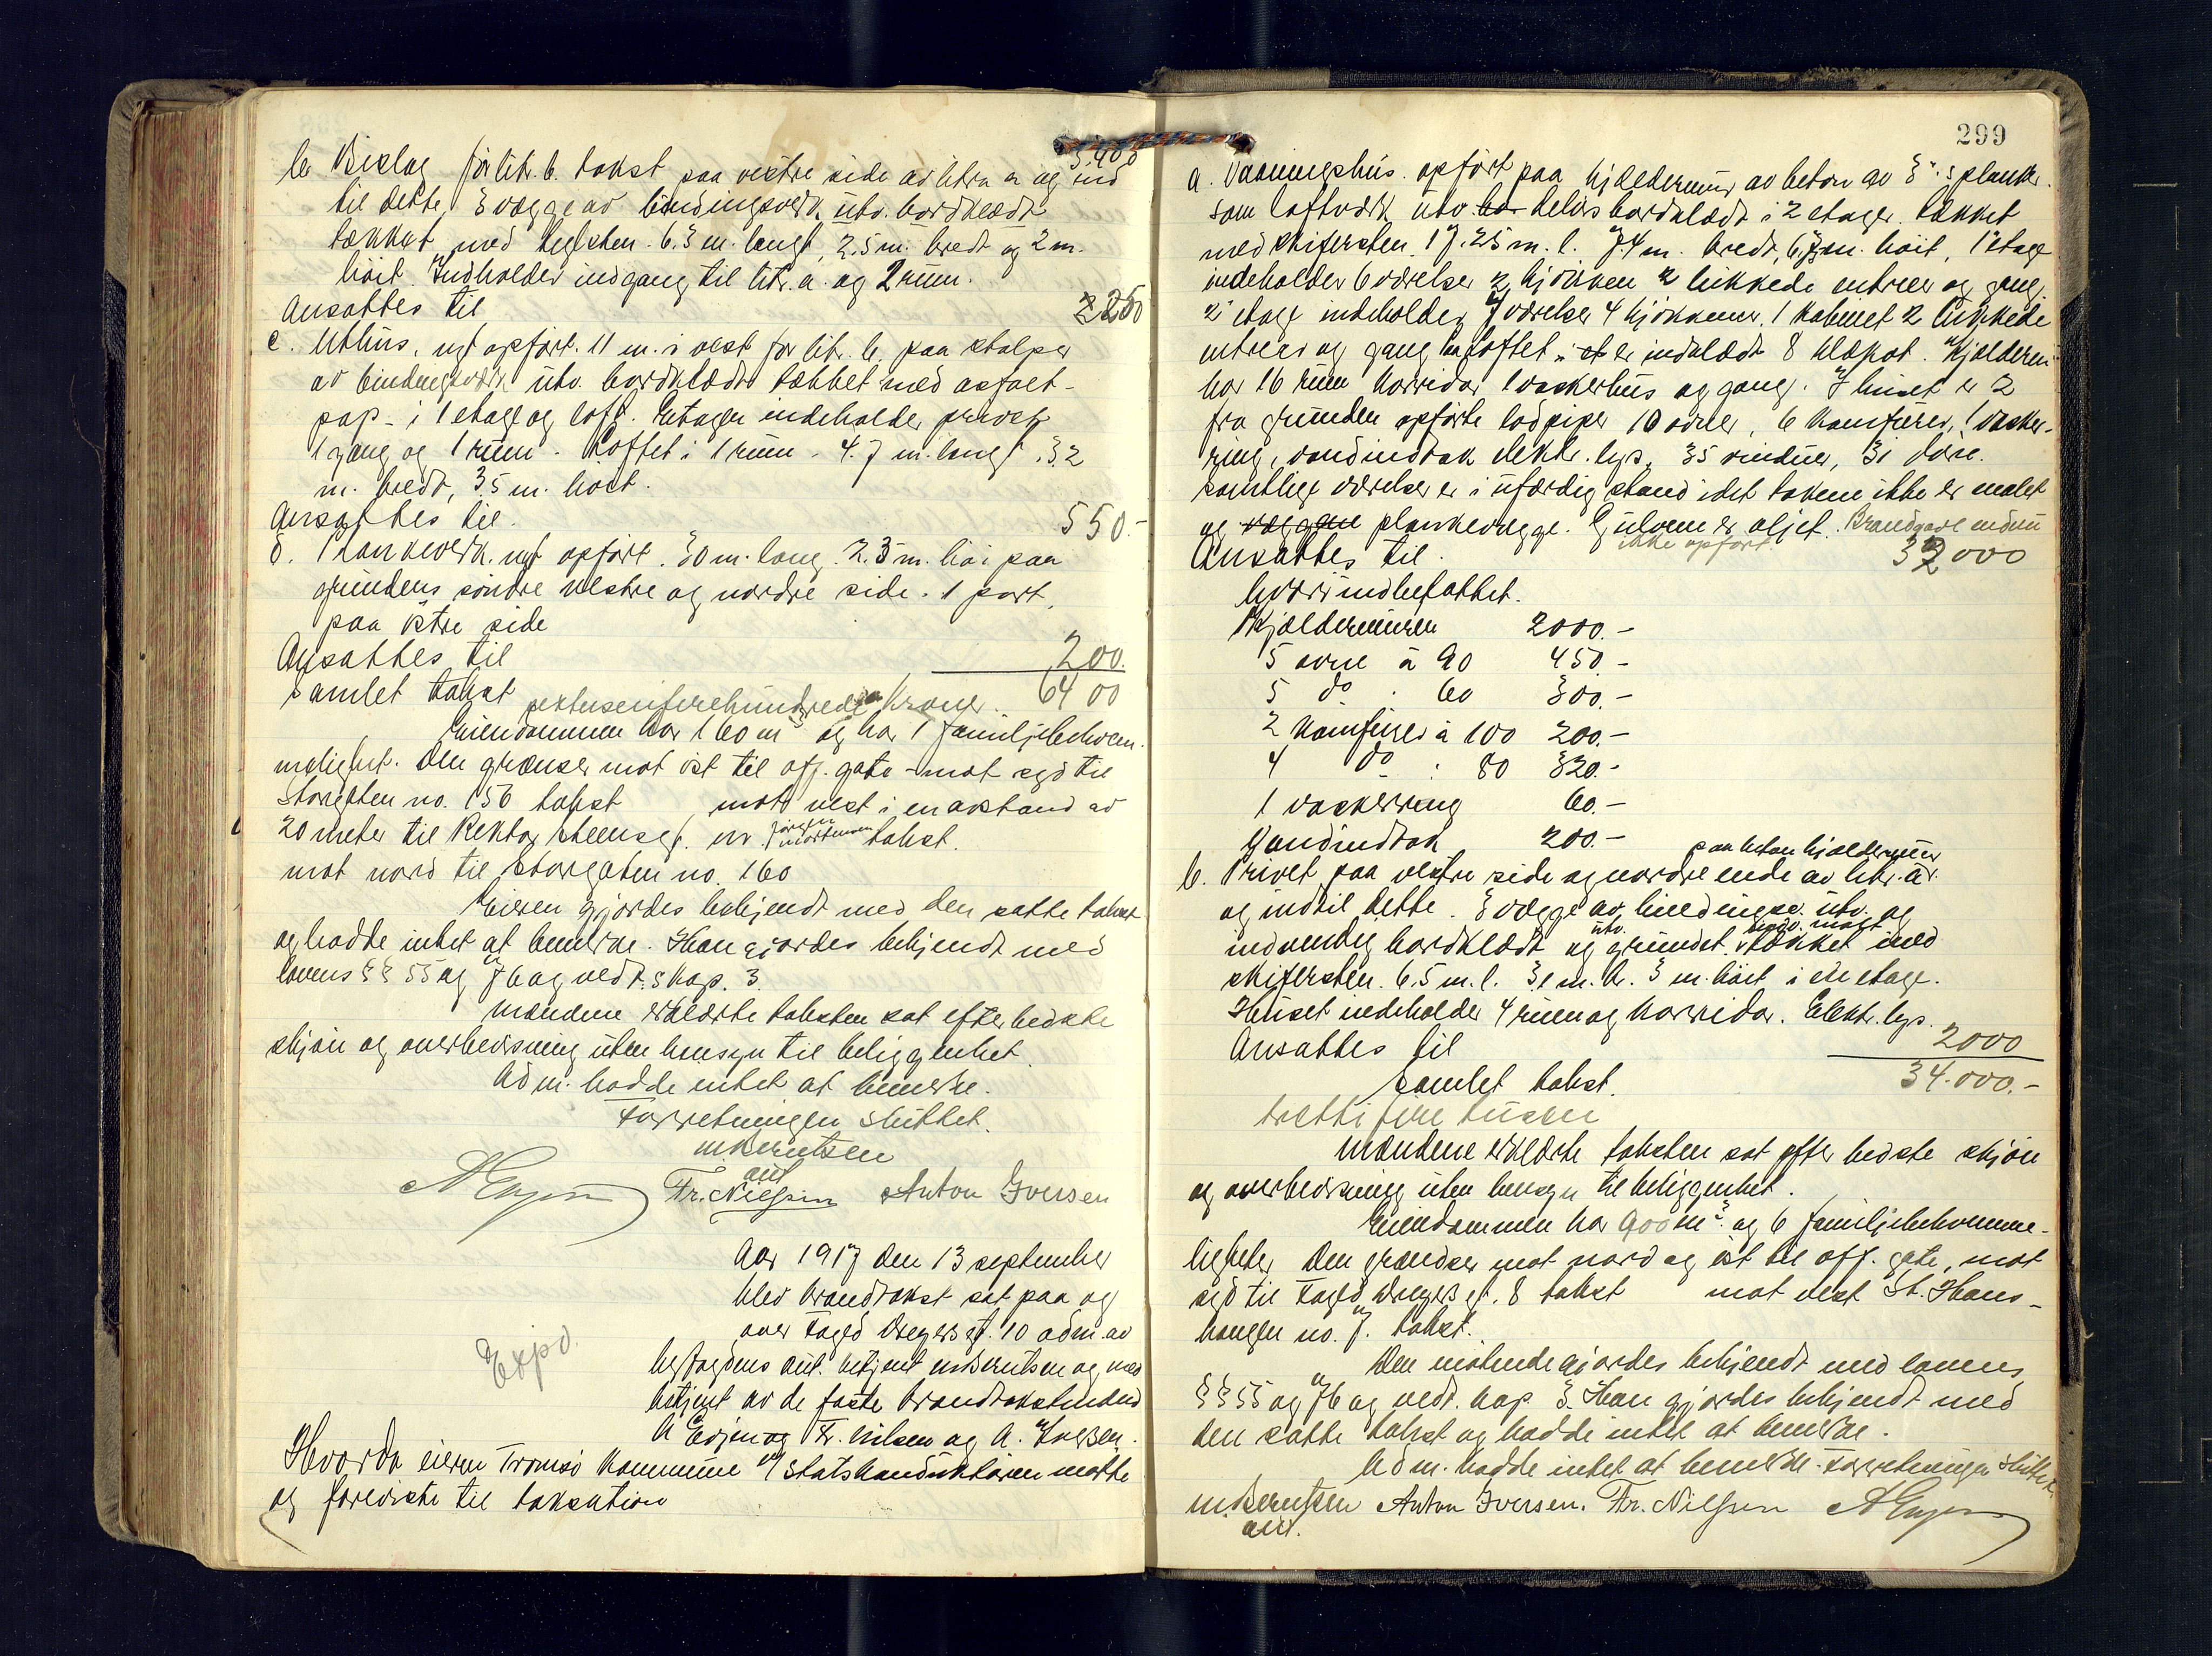 5.400
b Bislag før litr. b. takst paa vestre side av litra a og ind
til dette, 3 vægge av bindingsverk utv. bordklædt
tækket med teglsten. 6.3 m. langt, 2.5 m. bredt og 2 m.
høit. Indholder indgang til litr. a. og 2 rum.
Ansattes til 250
c. Uthus, nyt opført. 11 m. i vest for litr. b. paa stolper
av bindingsverk utv. bordklædt tækket med asfalt-
pap - i 1 etage og loft. Etagen indeholder privet
1 gang og 1 rum. Loftet i 1 rum. 4.7 m. langt, 3.2
m. bredt, 3.5 m. høit.
Ansattes til. 550.-
d. Plankeverk. nyt opført. 30 m. lang. 2.5 m. høi paa
grundens søndre vestre og nordre side. 1 port
paa østre side
Ansattes til 200.
Samlet takst sekstusenfirehundrede Kroner. 6400
Eiendommen har 160 m² og har 1 familjebekvem-
melighet. Den grænser mot øst til off. gate - mot syd til
Storgaten no. 156 takst mot vest i en avstand av
20 meter til Rektor Steensgt. nr. Jørgen Mortensen takst.
mot nord til Storgaten no. 160
Eieren gjordes bekjendt med den satte takst
og hadde intet at bemerke. Han gjordes bekjendt med
lovens §§ 55 og 76 og vedt. kap. 3.
Mændene erklærte taksten sat efter bedste
skjøn og overbevisning uten hensyn til beliggenhet.
Adm. hadde intet at bemerke.
Forretningen sluttet.
M Berntsen
aut
Fr. Nielsen Anton Iversen
Expd.
Aar 1917 den 13 september
blev brandtakst sat paa og
over Foged Dreyersgt. 10 adm. av
byfogdens aut. betjent M Berntsen og med
betjent av de faste brandtakstmænd
A Evjen og Fr. Nilsen og A. Iversen.
Hvorda eieren Tromsø Kommune v/ Statskonduktøren møtte
og foreviste til taksation
299
a. Vaaningshus. opført paa kjældermur av beton av 3" s planker
som laftverk utv. bo delvis bordklædt i 2 etager tækket
med skifersten. 17.25 m. l. 7.4 m. bredt, 6.7 m. høit, 1 etage
indeholder 6 værelser 2 kjøkken 2 lukkede entreer og gang,
2 etage indeholder 7 værelser 4 kjøkkener, 1 kabinet 2 lukkede
entreer og gang paa loftet i et er indklædt 8 klæskot. Kjælderen
har 16 rum korridor 1 vaskerhus og gang. I huset er 2
fra grunden opførte lodpiper 10 ovner, 6 komfurer, 1 vasker-
ring, vandindtak elektr. lys, 35 vinduer, 31 døre.
samtlige værelser er i uferdig stand idet takene ikke er malet
og væggene plankevægge. Gulvene er oljet. Brandgavl endnu
ikke opført.
Ansattes til. 32000
hvori indbefattet.
Kjældermuren 2000.-
5 ovne à 90 450.-
5 do . 60 300.-
2 komfurer à 100 200.-
4 do : 80 320.-
1 vaskerring 60.-
Vandindtak 200.-
paa beton kjældermur
b. Privet paa vestre side og nordre ende av litr. a.
og indtil dette. 3 vægge av bindingsv. utv. og
utv. indv. malt
indvendig bordklædt og grundet. tækket med
skifersten. 6.5 m. l. 3.1 m. b. 3 m. høit i en etage.
Huset indeholder 4 rum og korridor. Elektr. lys.
Ansattes til 2000
Samlet takst. 34.000.-
trettifire tusen
Mændene erklærte taksten sat efter bedste skjøn
og overbevisning uten hensyn til beliggenhet.
Eiendommen har 900 m². og 6 familjebekvemme-
ligheter. Den grændser mot nord og øst til off. gate, mot
syd til Foged Dreyers gt. 8 takst mot vest St. Hans-
haugen no. 7. takst.
Den møtende gjordes bekjendt med lovens
§§ 55 og 76 og vedt. kap. 3. Han gjordes bekjendt med
den satte takst og hadde intet at bemerke.
Adm. hadde intet at bemerke. Forretningen sluttet.
M Berntsen Anton Iversen. Fr. Nielsen
aut.